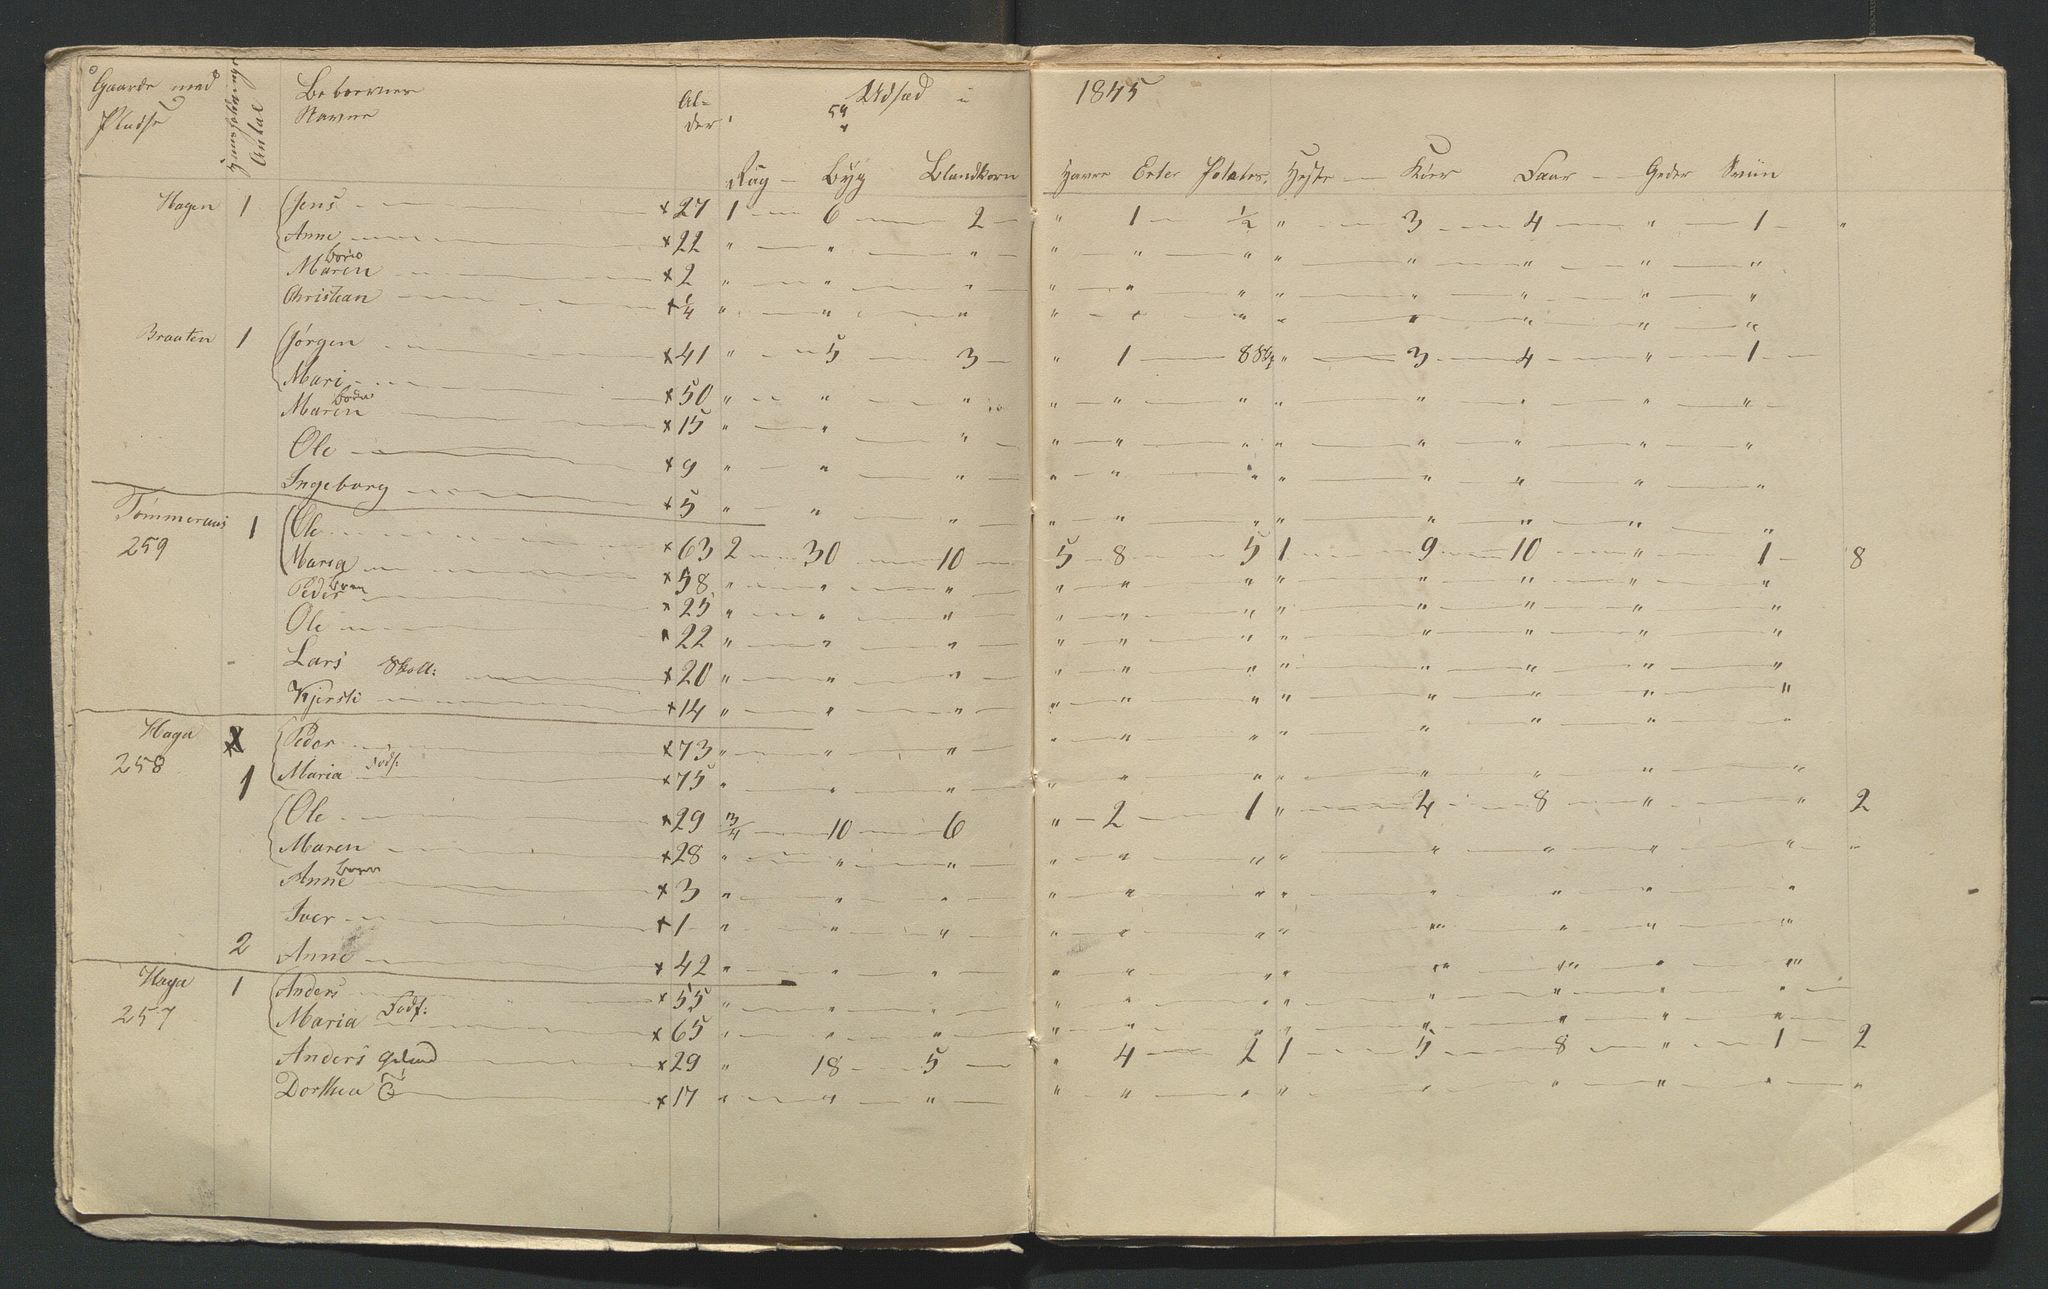 Gaarde med Pladse Huusholdninger Antal Beboernes Navne Alder Udsæd i 1845
Rug Byg Blandkorn Havre Erter Potates. Heste Kiør Faar Geder Sviin
Hagen 1 Jens × 27 1 6 2 " 1 ½ " 3 4 " 1 "
Anne × 22 " " " " " " " " " " "
Børn
Maren × 2 " " " " " " " " " " "
Christian × ¼ " " " " " " " " " " "
Braaten 1 Jørgen × 41 " 5 3 " 1 " 3 4 " 1
Mari × 50 " " " " " " " " " " "
Børn
Maren × 15 " " " " " " " " " " "
Ole × 9 " " " " " " " " " " "
Ingeborg × 5 " " " " " " " " " " "
Tømmeraas 259 1 Ole × 63 2 30 10 5 8 5 1 9 10 " 1 8
Maria × 58 " " " " " " " " " " "
Børn
Peder × 25 " " " " " " " " " " "
Ole × 22 " " " " " " " " " " "
Lars Skoll: × 20 " " " " " " " " " " "
Kjersti × 14 " " " " " " " " " " "
Haga 258 Peder × 73 " " " " " " " " " " "
1 Maria Fodf: × 75 " " " " " " " " " " "
Ole × 29 ¾ 10 6 " 2 1 " 4 8 " " 2
Maren × 28 " " " " " " " " " " " "
Børn
Anne × 3 " " " " " " " " " " "
Iver × 1 " " " " " " " " " " "
2 Anne × 42 " " " " " " " " " " "
Haga 257 1 Anders × 55 " " " " " " " " " " "
Maria Fodf: × 65 " " " " " " " " " " "
Anders × 29 " 18 5 " 4 2 1 5 8 " 1 2
Dorthea × 17 " " " " " " " " " " " "